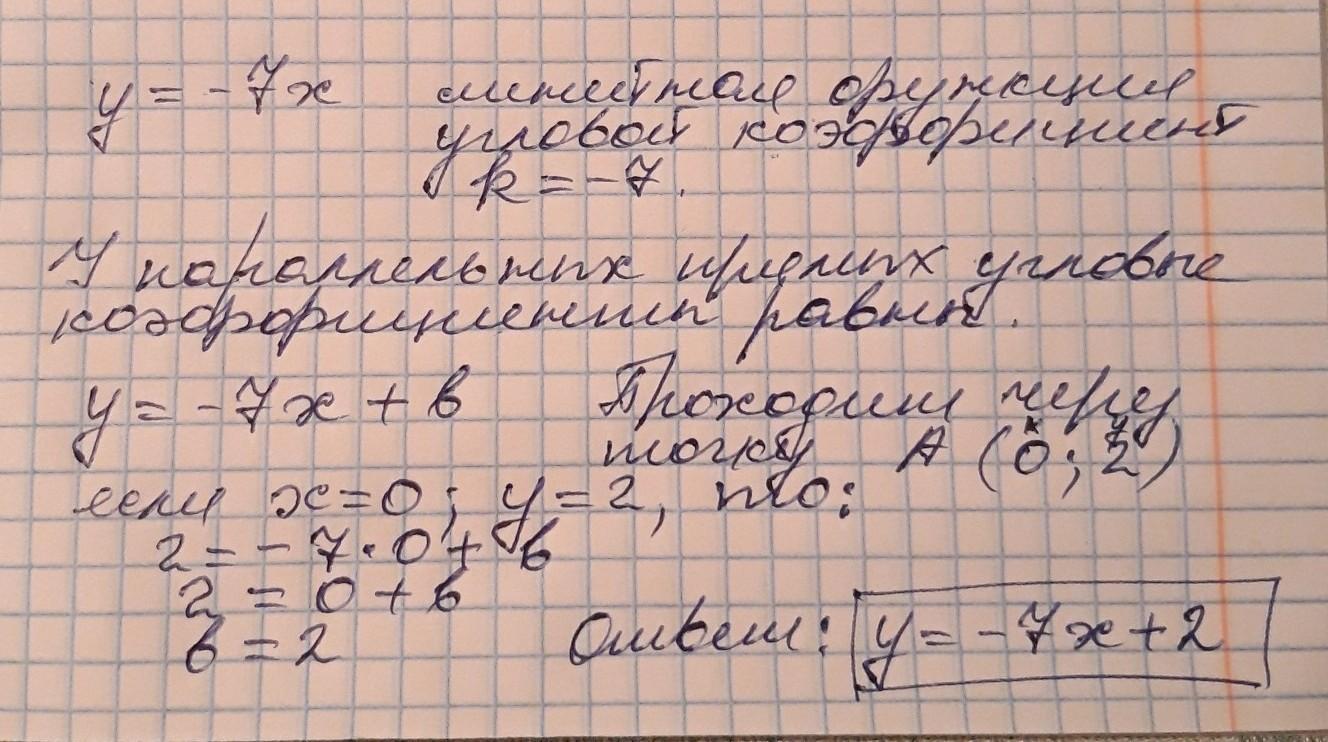 y = -7x линейная функция
угловой коэффициент
k = -7.
У параллельных прямых угловые
коэффициенты равны.
y = -7x + b Проходит через
точку A (0; 2)
x y
если x = 0; y = 2, то:
2 = -7 · 0 + b
2 = 0 + b
b = 2
Ответ: y = -7x + 2